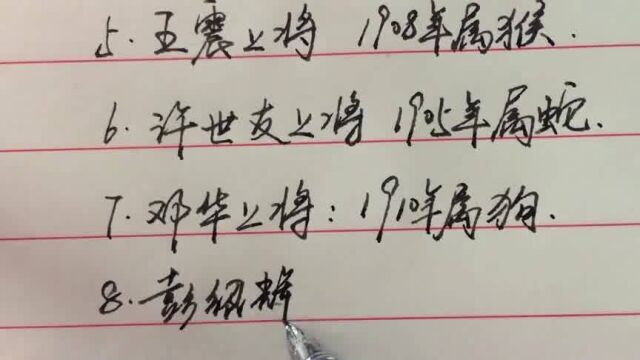 5.王震上将 1908年属猴.
6.许世友上将 1905年属蛇.
7.邓华上将：1910年属狗.
8.彭绍辉